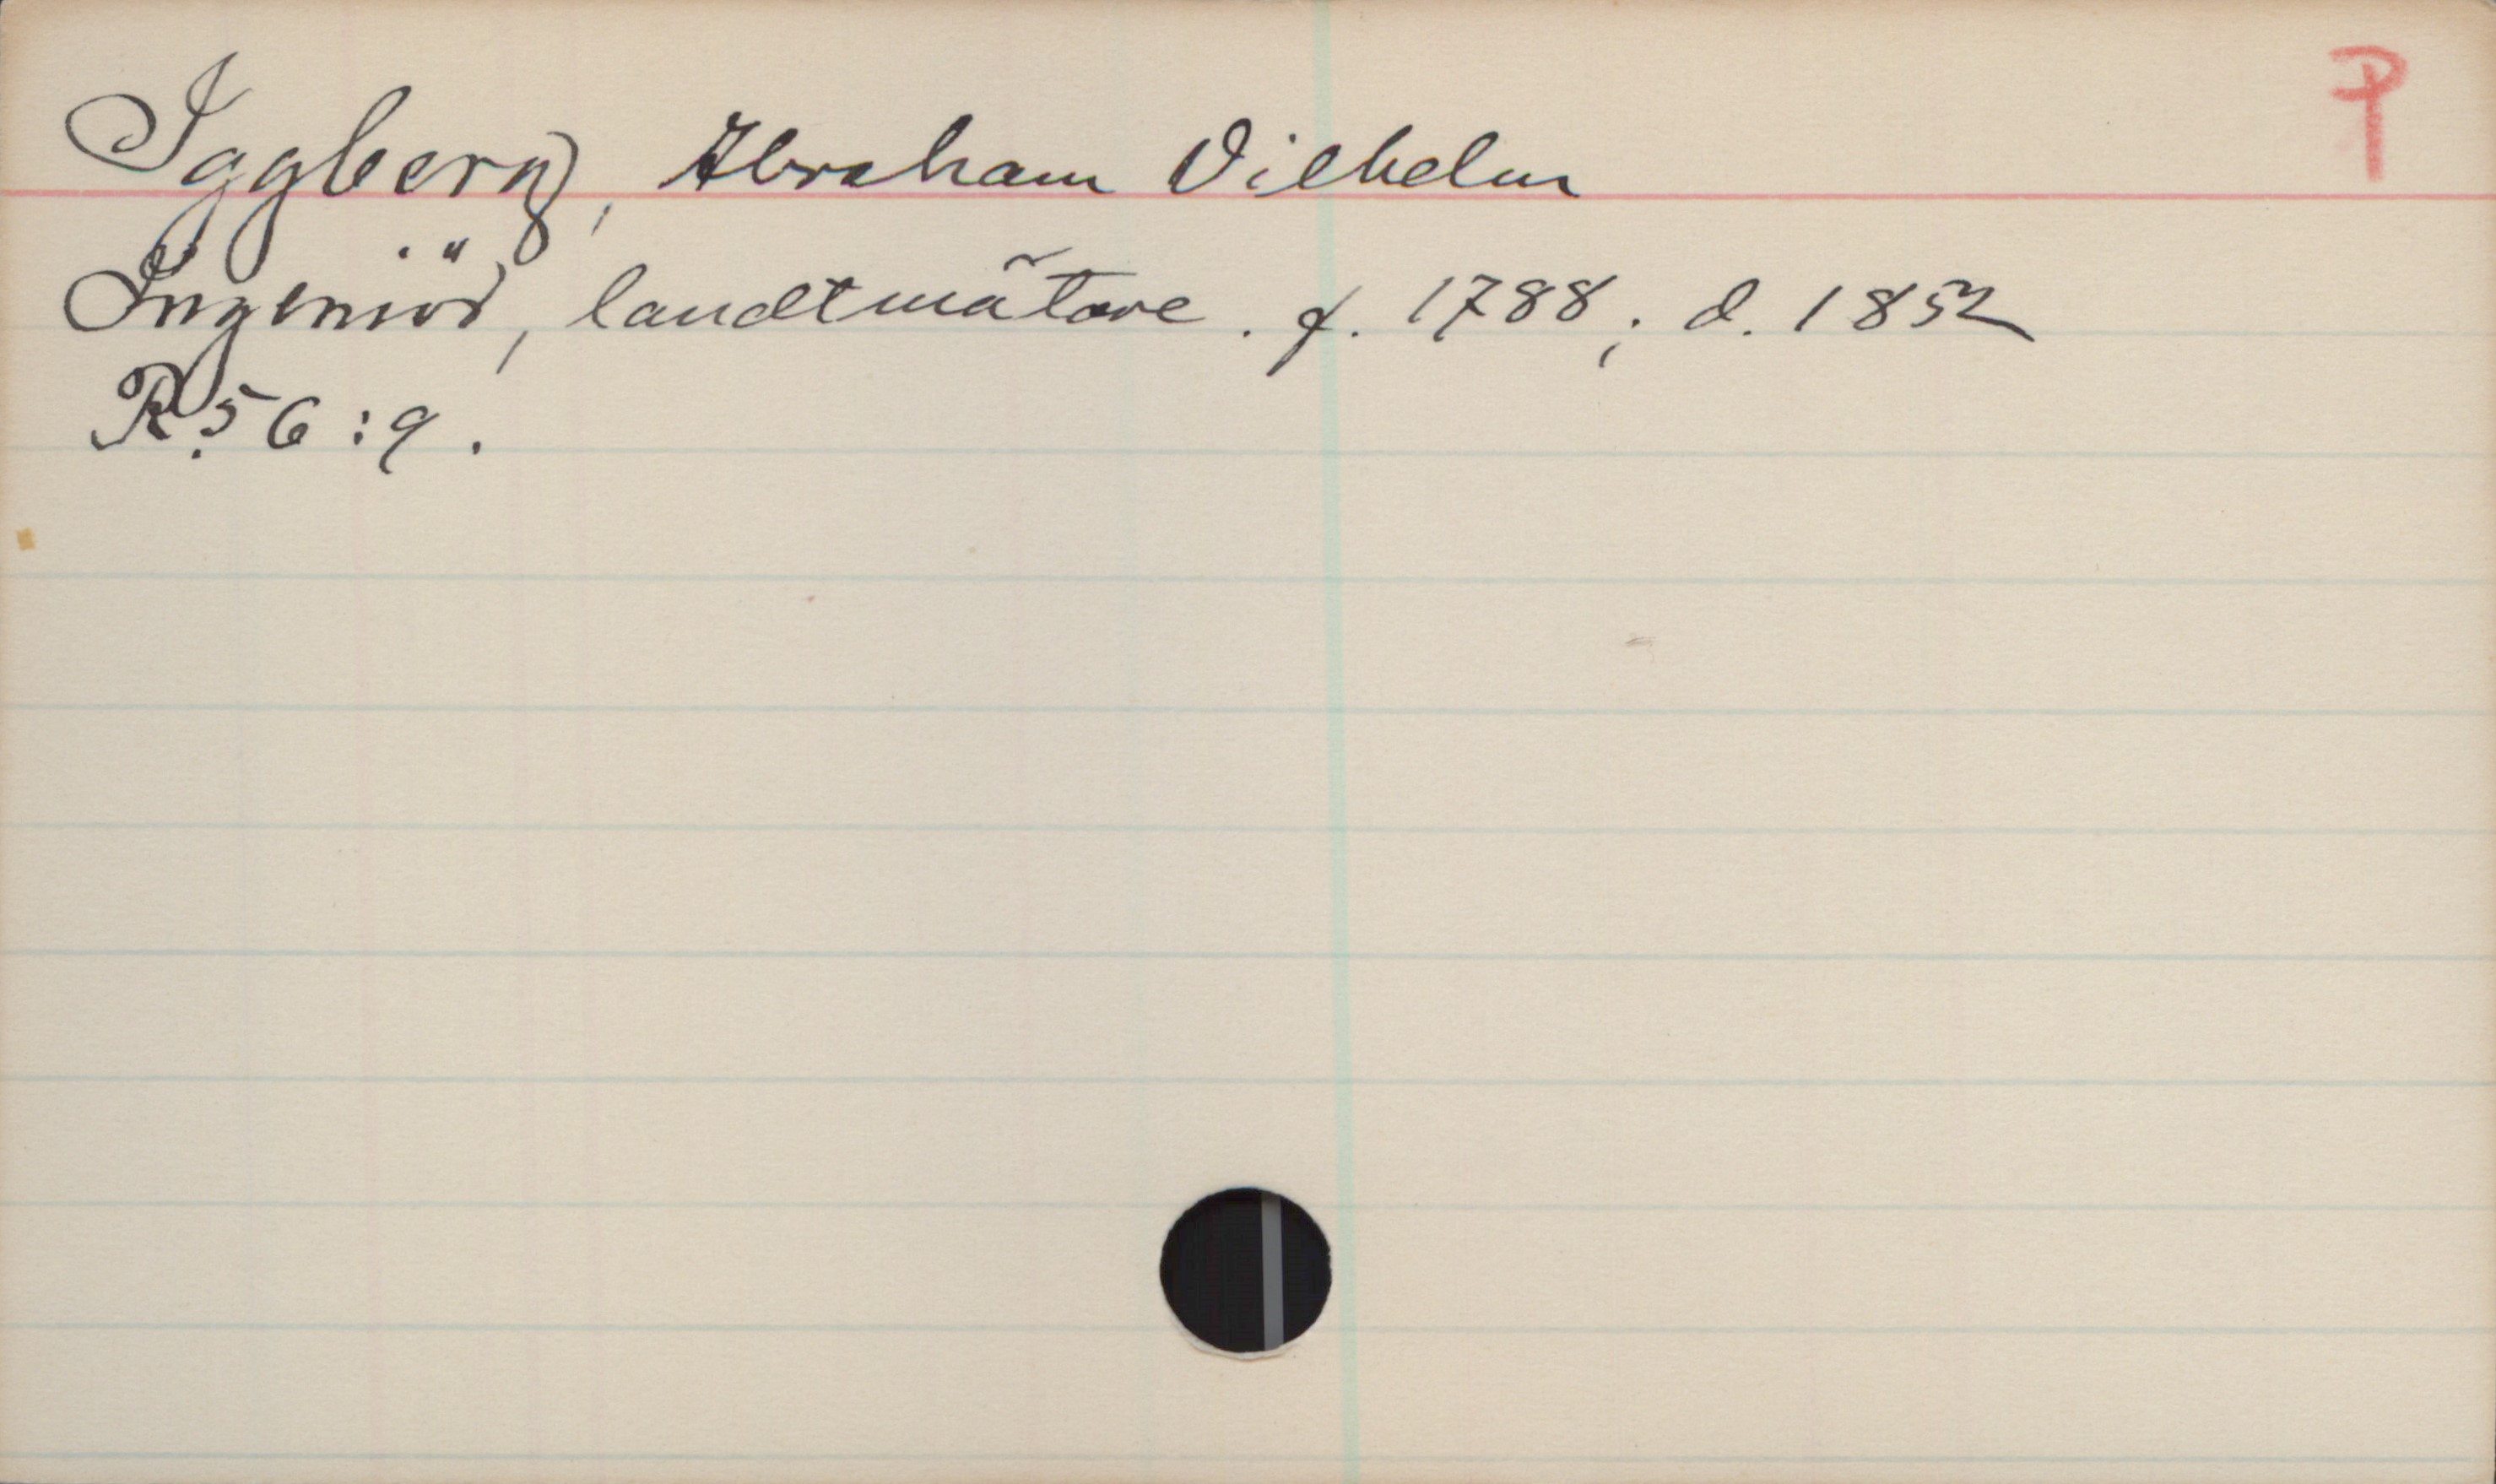 P
Iggberg, Abraham Vilhelm
Ingeniör, landtmätare. f. 1788; d. 1852
R. 56:9.